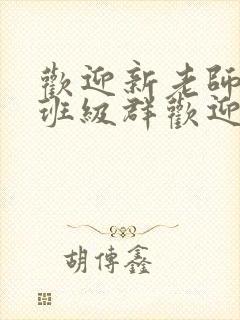 歡迎新老師
班級群歡迎
胡傳鑫